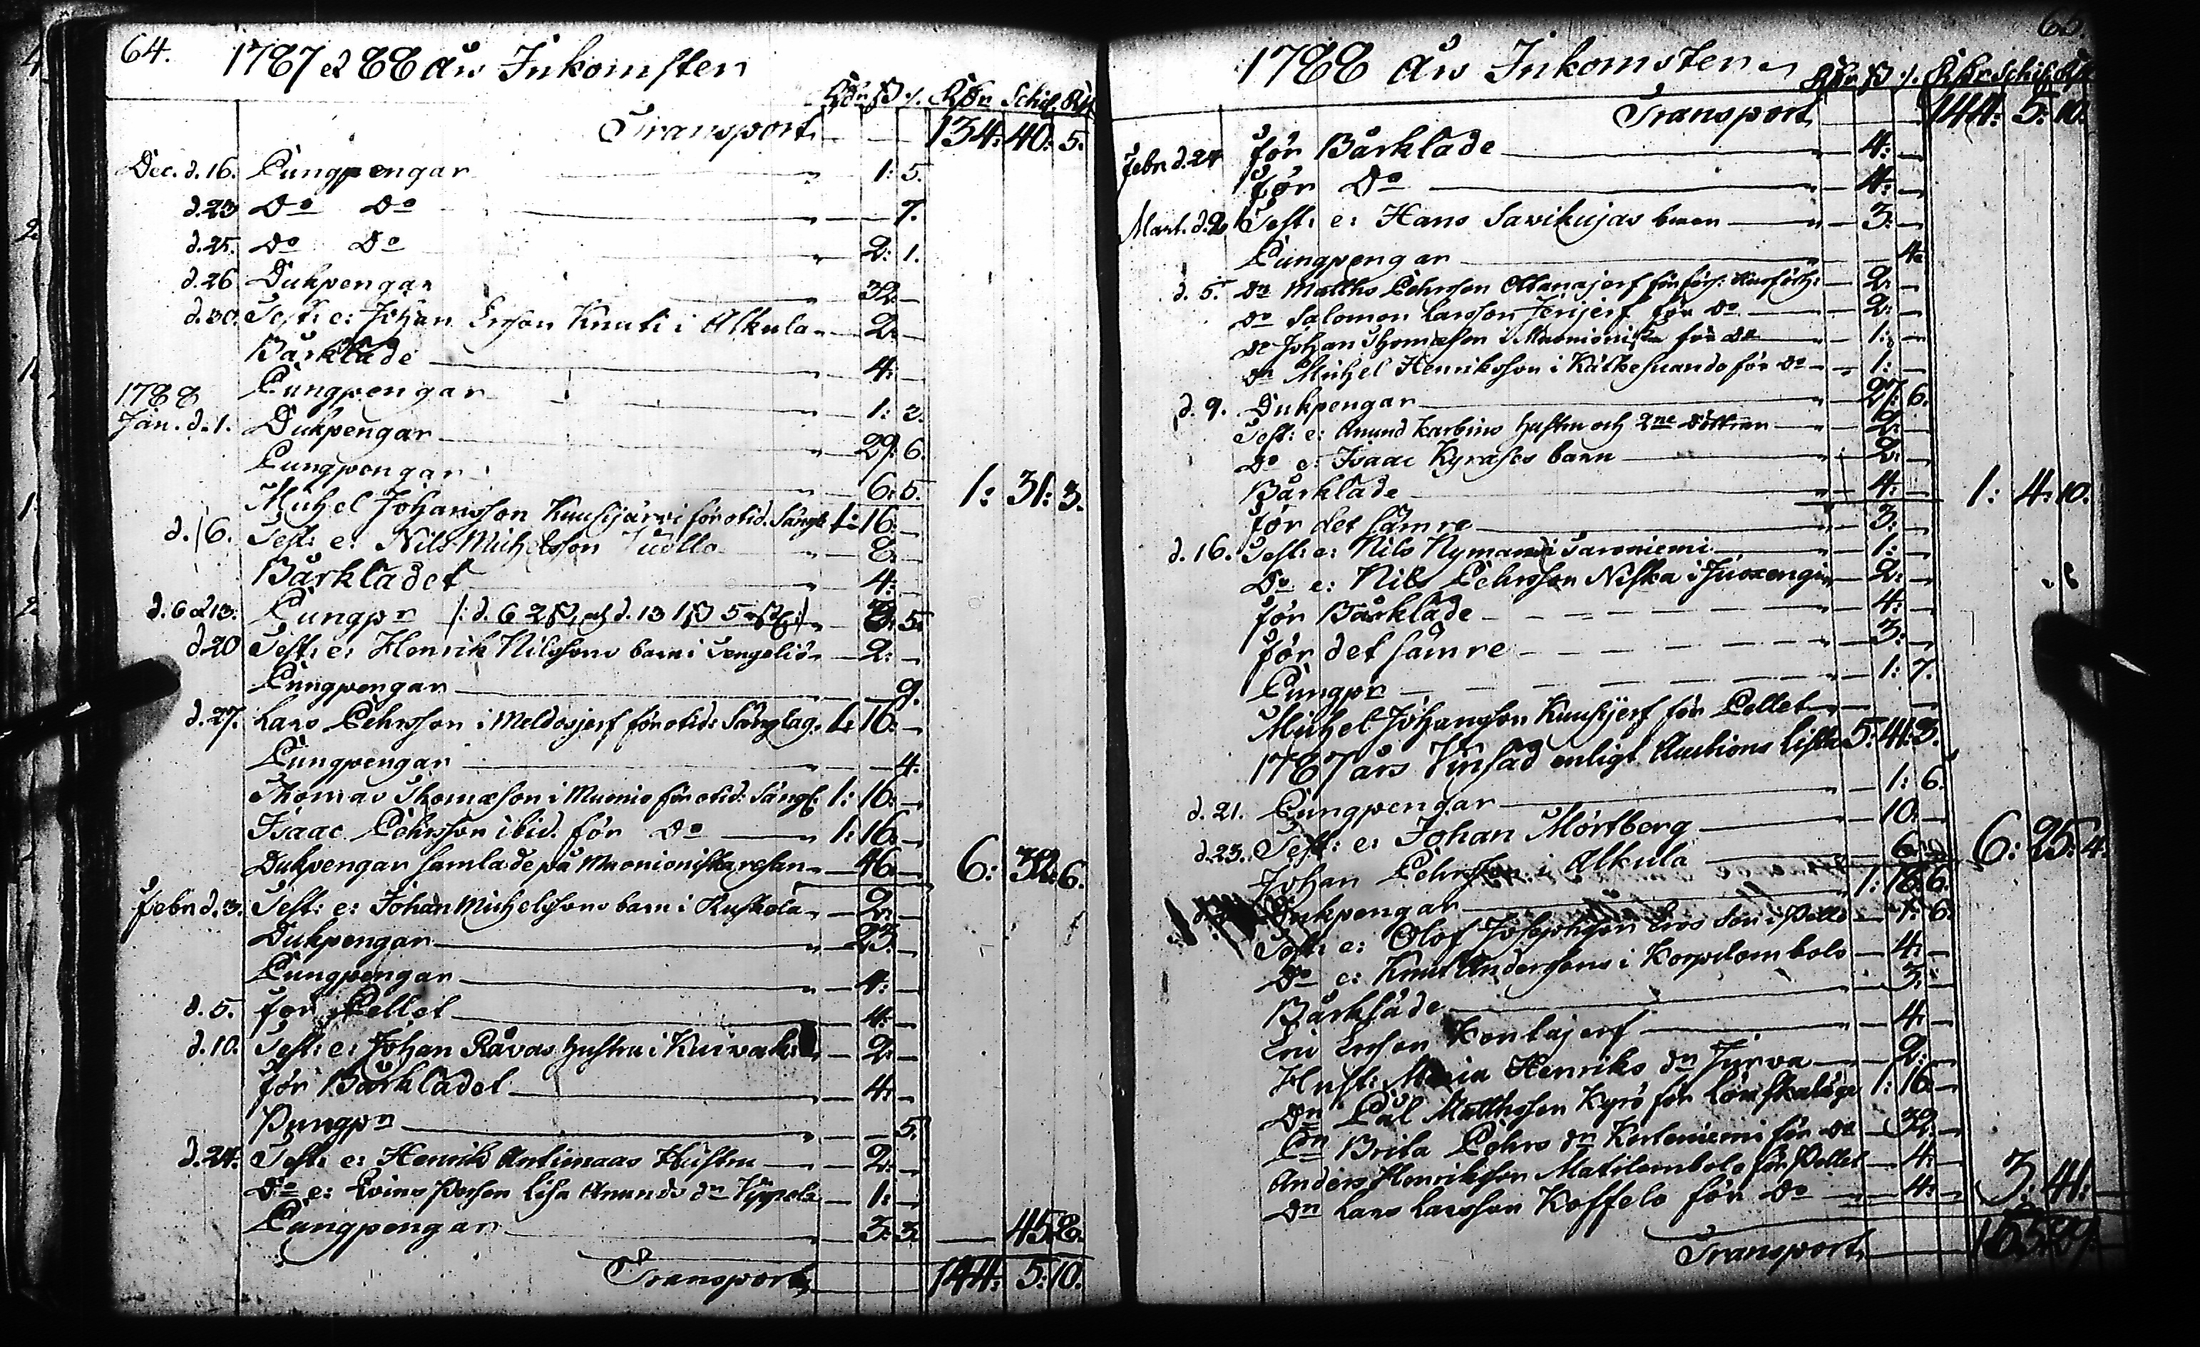 64.
1787 et 88 års Inkomster
Rdr ß /. Rdr Schil. Rst
Transport 134: 40: 5.
Dec. d. 16. Pungpengar 1: 5.
d. 23 Do Do 7.
d. 25. Do Do 2: 1.
d. 26 Dukpengar 32
d. 30. Test: e: Johan Ersson Knuti i Alkula 2:
Bårkläde 4:
Pungpengar 1: 2.
1788
Jan. d. 1. Dukpengar 29: 6.
Pungpengar 6: 5. 1: 31: 3.
Michel Johansson Kuusijärvi för otid. Sängl. 1: 16:
d. 6. Test: e: Nils Michelsson 8:
Bårklädet 4:
d. 6 et 13: Pungpr /: d. 6 2ß, och d. 13 1ß 5 :/ 3: 5.
d. 20 Test: e: Henrik Nilssons barn i Tengeliö 2:
Pungpengar 9.
d. 27. Lars Pehrsson i Meldosjerf för otid: Sänglag. 1: 16:
Pungpengar 4.
Thomas Thomæson i Muonio för otid: Sängl: 1: 16:
Isaac Pehrsson ibid. för Do 1: 16:
Dukpengar samlade på Muonioniska resan 46 6: 32: 6.
Febr. d. 3. Test: e: Johan Michelssons barn i Ruskola 2:
Dukpengar 23.
Pungpengar 4:
d. 5. för Pellet 4:
d. 10. Test: e: Johan Råvas hustru i 2:
för Bårklädet 4:
Pungpr 5.
d. 24. Test: e: Henrik Antimaas Hustru 2:
Do e: Lisa Anunds dr 1:
Pungpengar 3: 3. 45: 8.
Transport 144: 5: 10.
65.
1788 års Inkomster
Rdr ß /. Rdr Schil. Rst
Transport 144: 5: 10.
Febr. d. 24 för Bårkläde 4:
för Do 4:
Mart. d. 2 Test: e: Hans Savikujas barn 3:
Pungpengar 4.
d. 5. Dn Matths Pehrsson Ollanajerf för 2:
Do Salomon Larsson Jerijerf för Do 2:
Do Johan Thomæson i Muonioniska för Do 1:
Dn Michel Henriksson i Kätkesuando för Do 1:
d. 9. Dukpengar 27: 6.
Test: e: Anund Karbins hustru och 2ne döttrar 2:
Do e: Isaac Kyrases barn 2:
Bårkläde 4: 1: 4: 10.
för det sämre 3:
d. 16. Test: e: Nils Nymans i 1:
Do e: Nils Pehrsson Niska i Juoxengi 2:
för Bårkläde 4:
för det sämre 3:
Pungpr 1: 7.
Michel Johansson Kuusijerf för Pellet
1787 års enligt Auctions lista 5: 41: 3.
d. 21. Pungpengar 1: 6.
d. 23. Test: e: Johan Mörtberg 10:
Johan Pehrsson i Alkula 6: 25: 4.
Dukpengar 1: 18: 6.
Test: e: Olof Josephsson Eros Son i Pello 1: 6.
Do e: Knut Anderssons i Korpilombolo 4:
Bårkläde 3:
Eric Ersson Kenlajerf 4:
Hust: Maria Henriks dr Jurva 2:
Dn Pål Matthsson Kyrö för 1: 16
Pn Brita Pehrs dr Kerteniemi för Do 32.
Anders Henriksson Matilombolo för Pellet 4:
Dn Lars Larsson Koffelo för Do 4: 3: 41:
Transport